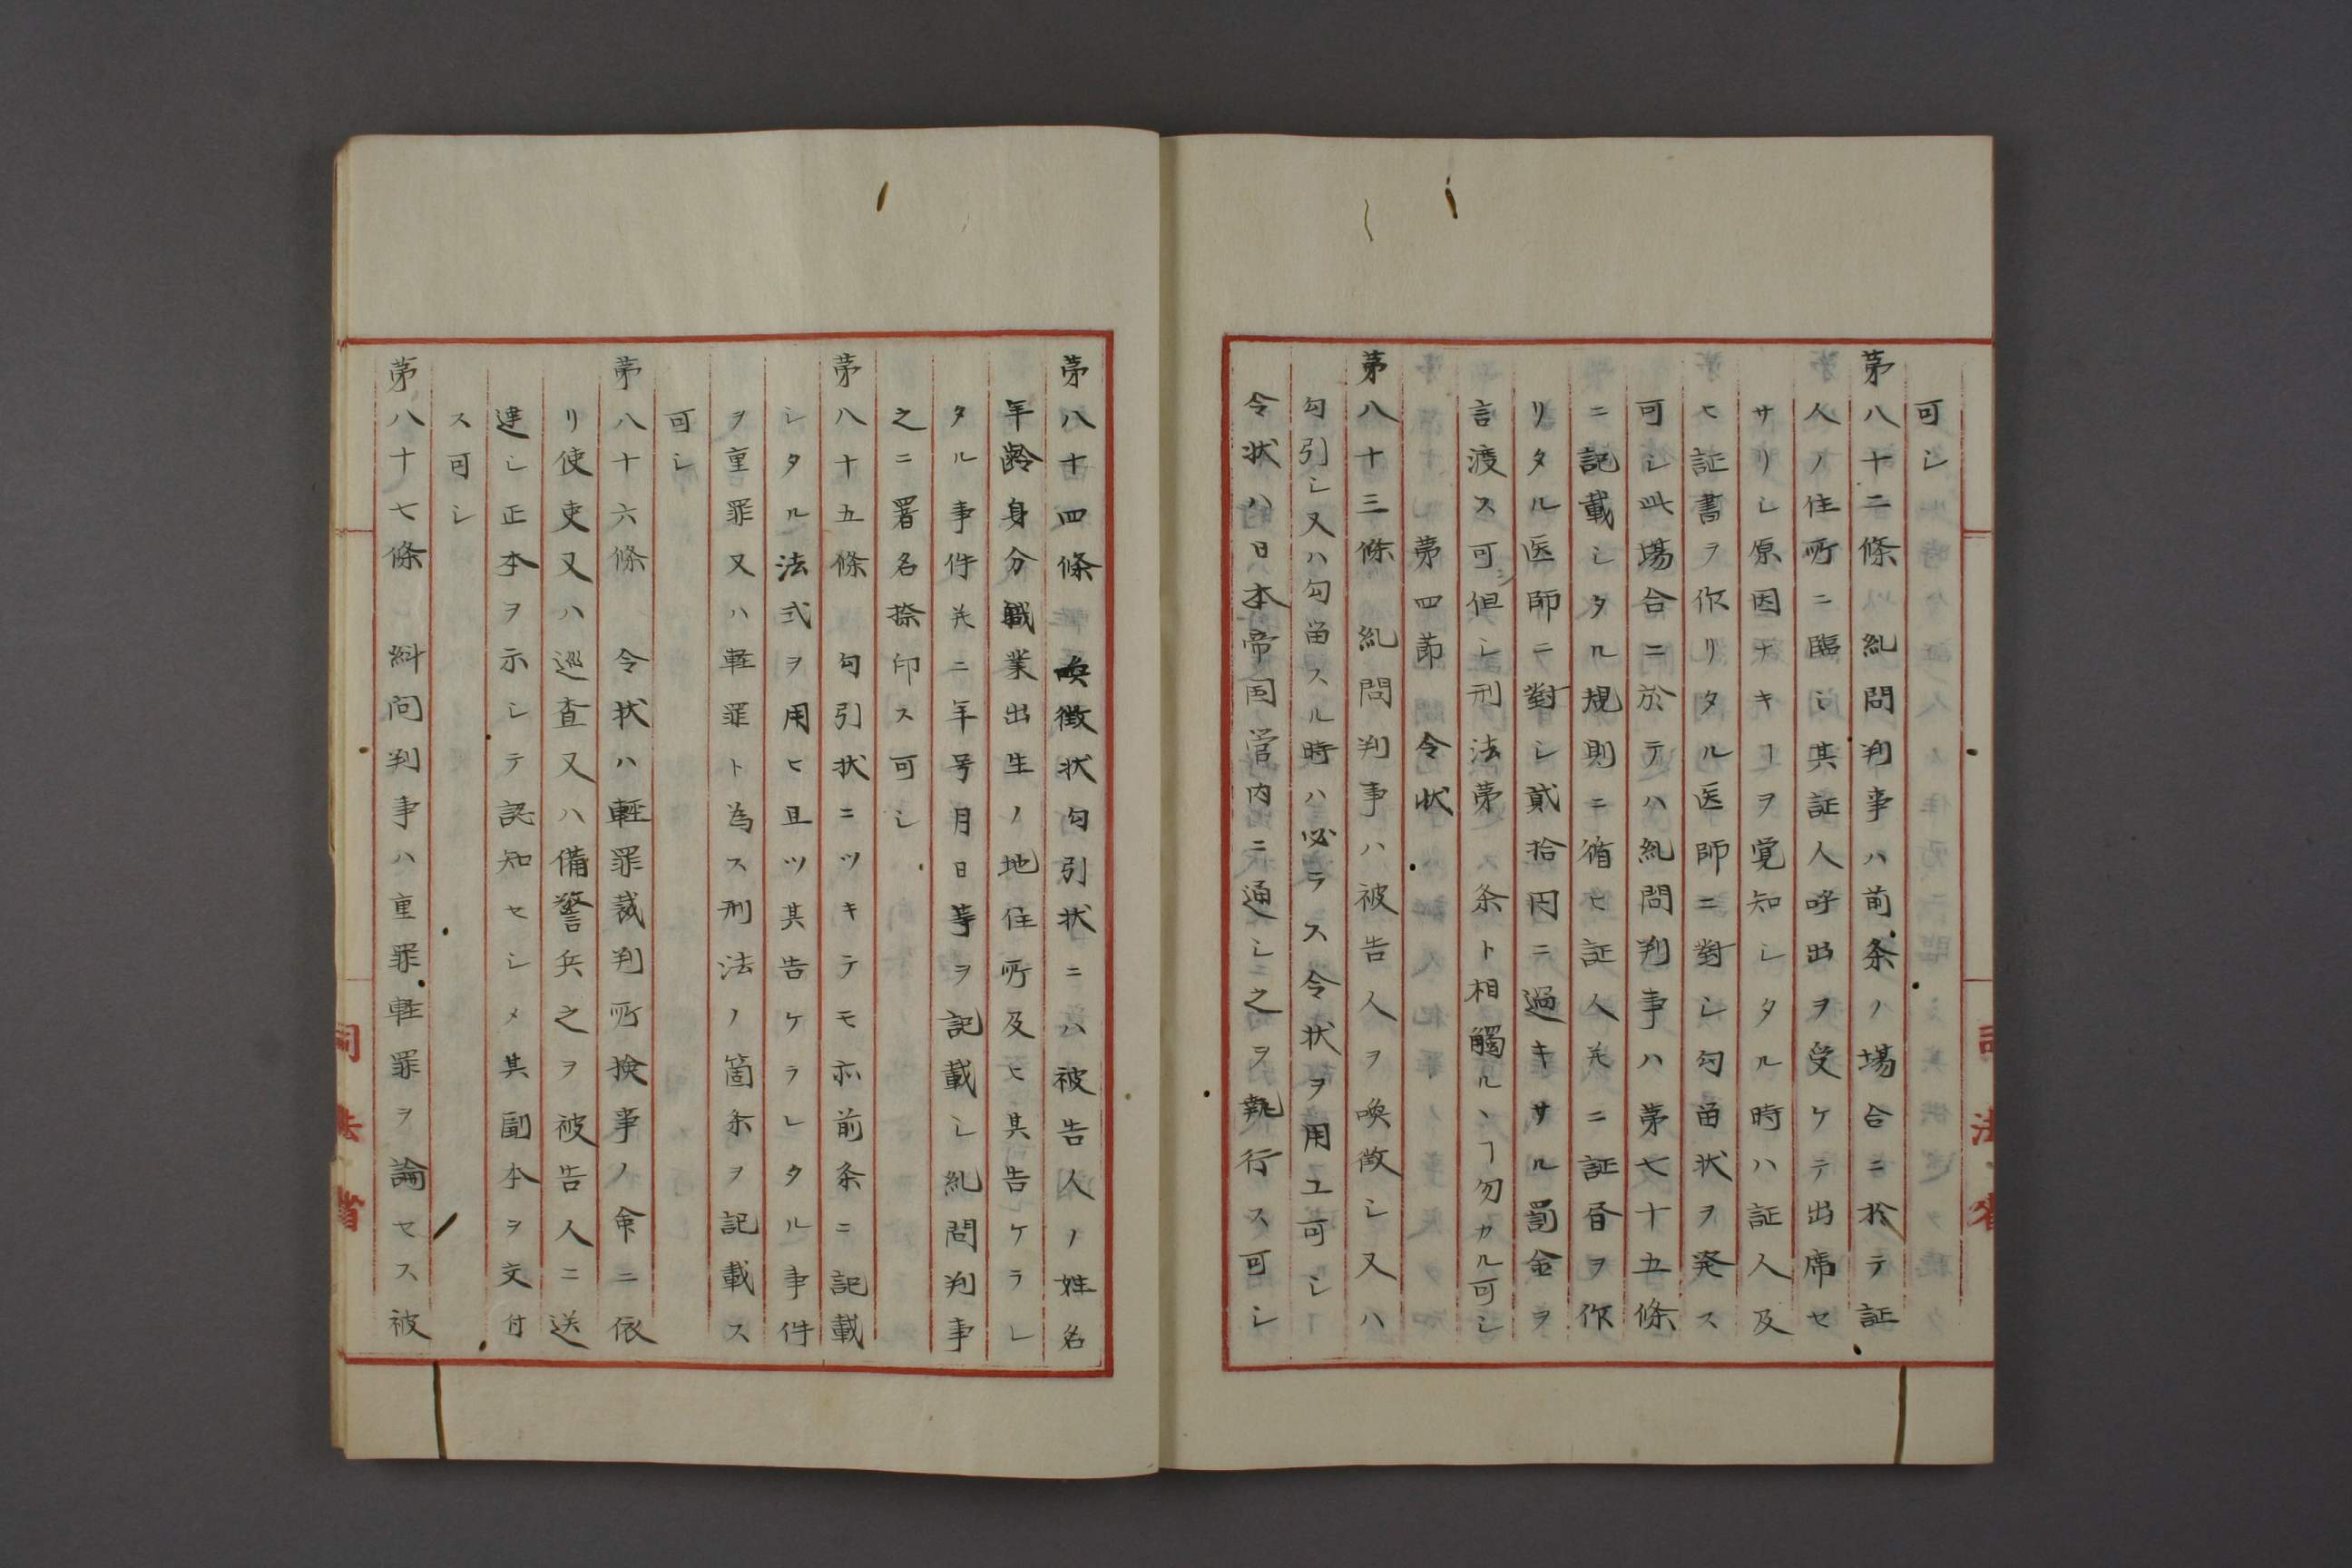 可シ
第八十二條 糺問判事ハ前条ノ場合ニ於テ証
人ノ住所ニ臨シ其証人呼出ヲ受ケテ出席セ
サリシ原因ナキヿヲ覚知シタル時ハ証人及
ヒ証書ヲ作リタル医師ニ對シ勾留状ヲ発ス
可シ此場合ニ於テハ糺問判事ハ第七十五條
ニ記載シタル規則ニ循ヒ証人並ニ証書ヲ作
リタル医師ニ對シ貳拾円ニ過キサル罰金ヲ
言渡ス可但シ刑法第 条ト相觸ルヽヿ勿カル可シ
第四節 令状
第八十三條 糺問判事ハ被告人ヲ喚徴シ又ハ
勾引シ又ハ勾留スル時ハ必ラス令状ヲ用ユ可シ
令状ハ日本帝国管内ニ通シ之ヲ執行ス可シ
第八十四條 喚徴状勾引状ニハ被告人ノ姓名
年齢身分職業出生ノ地住所及ヒ其告ケラレ
タル事件並ニ年号月日等ヲ記載シ糺問判事
之ニ署名捺印ス可シ
第八十五條 勾引状ニツキテモ亦前条ニ記載
シタル法式ヲ用ヒ且ツ其告ケラレタル事件
ヲ重罪又ハ軽罪ト為ス刑法ノ箇条ヲ記載ス
可シ
第八十六條 令状ハ軽罪裁判所検事ノ命ニ依
リ使吏又ハ巡査又ハ備警兵之ヲ被告人ニ送
達シ正本ヲ示シテ認知セシメ其副本ヲ交付
ス可シ
第八十七條 糾問判事ハ重罪軽罪ヲ論セス被
司法省
司法省